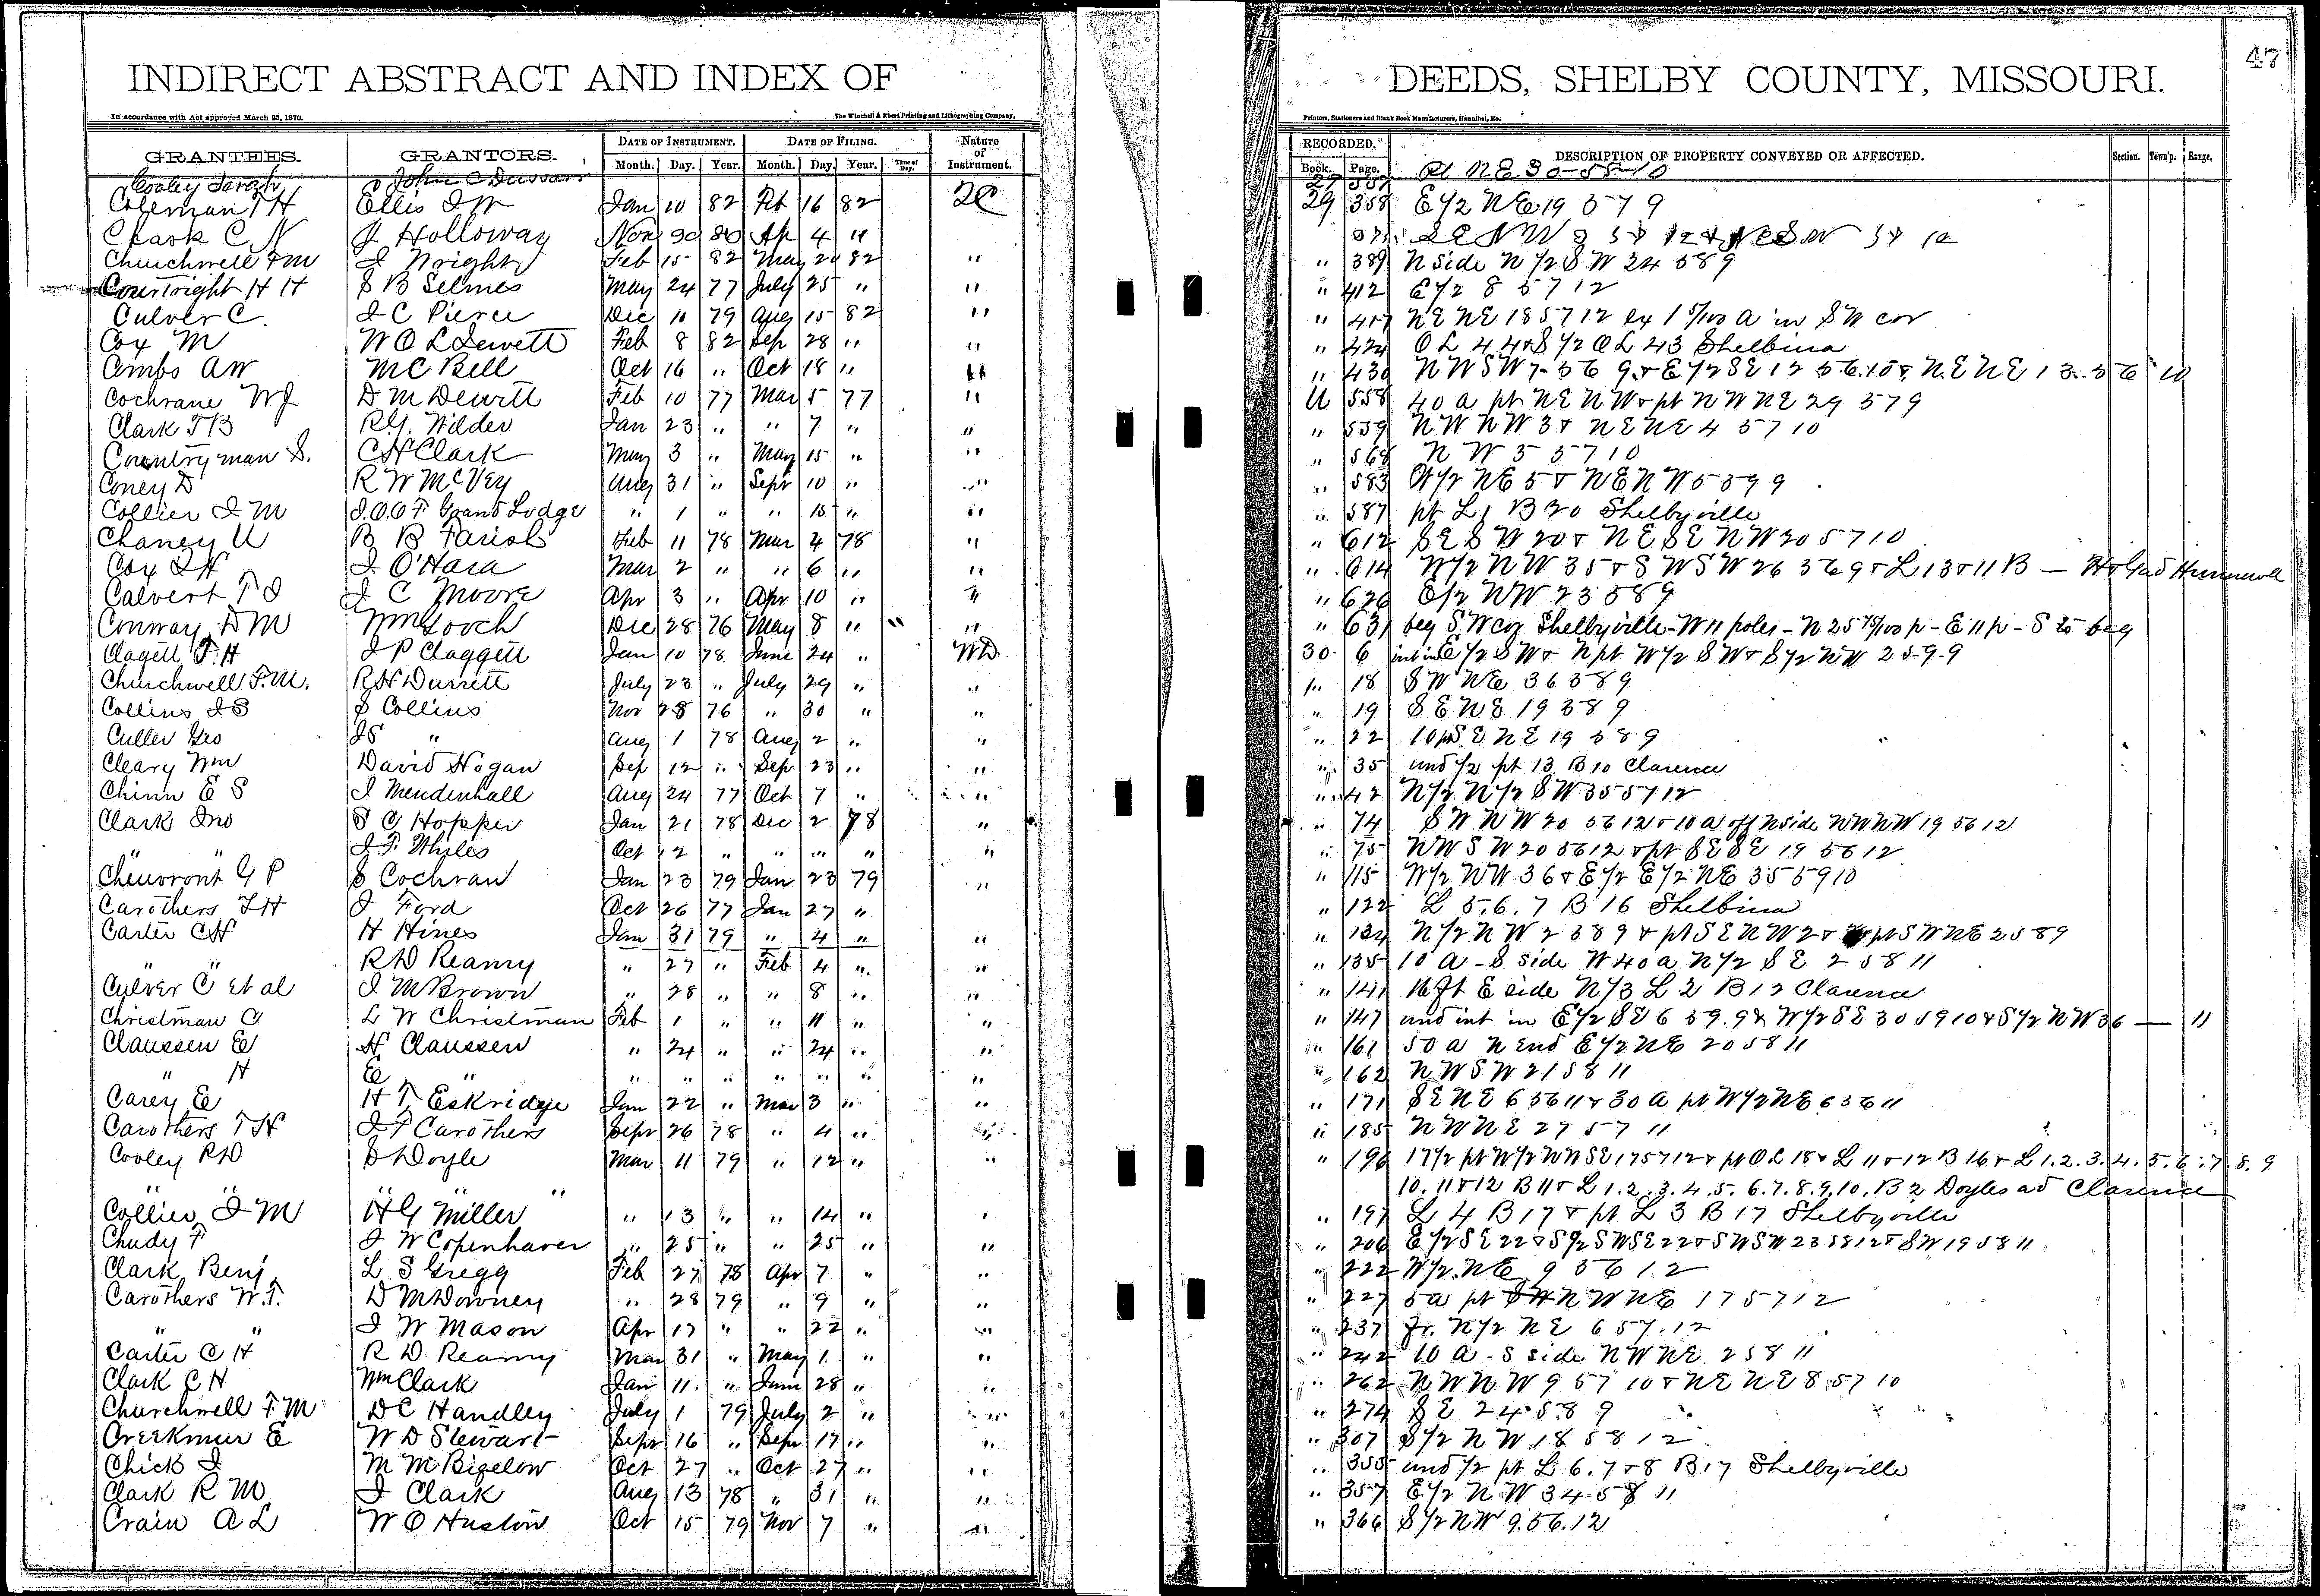 47
INDIRECT ABSTRACT AND INDEX OF DEEDS, SHELBY COUNTY, MISSOURI.
In accordance with Act approved March 28, 1870. The Winchell & Ebert Printing and Lithographing Company, Printers, Stationers and Blank Book Manufacturers, Hannibal, Mo.
GRANTEES. GRANTORS. DATE OF INSTRUMENT. DATE OF FILING. Nature of Instrument. RECORDED. DESCRIPTION OF PROPERTY CONVEYED OR AFFECTED. Section. Town'p. Range.
Month. Day. Year. Month. Day. Year. Time of Day. Book. Page.
Cooley Sarah John C 27 557 pt NE 30-55-10
Coleman T H Ellis J W Jan 10 82 Feb 16 82 2C 29 358 E1/2 NE 19 57 9
Clark C N J Holloway Nov 30 80 Ap 4 "
Churchwell F M J Wright Feb 15 82 May 20 82 " " 389 N side N1/2 SW 24 58 9
Courtright H H S B Selmes May 24 77 July 25 " " " 412 E1/2 8 57 12
Culver C. J C Pierce Dec 10 79 Aug 15 82 " " 417 NE NE 18 57 12 ex 1 5/100 a in SW cor
Cox M W O L Jewett Feb 8 82 Sep 28 " " " 424 OL 44 & S1/2 OL 43 Shelbina
Combs A W M C Bell Oct 16 " Oct 18 " " " 430 NWSW 7-56 9 & E1/2 SE 12 56.10 & NE NE 13.56 10
Cochrane W J D M Dewitt Feb 10 77 Mar 5 77 " U 558 40 a pt NE NW & pt NW NE 29 57 9
Clark T B R G. Wilder Jan 23 " " 7 " " " 559 NW NW 3 & NE NE 4 57 10
Countryman S. C H Clark May 3 " May 15 " " " 568 NW 3 57 10
Coney D R W McVey Aug 31 " Sepr 10 " " " 583 W1/2 NE 5 & NE NW 5 59 9
Collier J M I.O.O F Grand Lodge " 1 " " 15 " " " 587 pt L 1 B 20 Shelbyville
Chaney U B B Parish Feb 11 78 Mar 4 78 " " 612 SE SW 20 & NE SE NW 20 57 10
Cox J H J O'Hara Mar 2 " " 6 " " " 614 W1/2 NW 35 & SW SW 26 56 9 & L 13 & 11 B — Hunnewell
Calvert T J J C Moore Apr 3 " Apr 10 " " " 626 E1/2 NW 23 58 9
Conway D M Wm Gooch Dec 28 76 May 8 " " " " 631 beg SW cor Shelbyville - W 11 poles - N 25 75/100 p - E 11 p - S to beg
Clagett J. H J P Claggett Jan 10 78 June 24 " WD 30 6 int in E1/2 SW & N pt W1/2 SW & S1/2 NW 25-9-9
Churchwell F. M. R H Durrett July 23 " July 29 " " " 18 SW NE 36 58 9
Collins J S S Collins Nov 28 76 " 30 " " " 19 SE NE 19 58 9
Culler Geo J S " Aug 1 78 Aug 2 " " " 22 SE NE 19 58 9
Cleary Wm David Hogan Sep 12 " Sep 23 " " " 35 und 1/2 pt 13 B 10 Clarence
Chinn E S J Mendenhall Aug 24 77 Oct 7 " " " 42 N1/2 N1/2 SW 35 57 12
Clark Jno S C Hopper Jan 21 78 Dec 2 78 " " 74 SW NW 20 56 12 & 10 a off N side NW NW 19 56 12
" " J F. Whiles Oct 12 " " " " " " 75 NW SW 20 56 12 & pt SE SE 19 56 12
Cheuvront G P S Cochran Jan 23 79 Jan 23 79 " " 115 W1/2 NW 36 & E1/2 E1/2 NE 35 59 10
Carothers T H J Ford Oct 26 77 Jan 27 " " 122 L 5.6.7 B 16 Shelbina
Carter C H H Hines Jan 31 79 " 4 " " " 134 N1/2 NW 2 58 9 & pt SE NW 2 & pt SW NE 2 58 9
" " R D Reamy " 27 " Feb 4 " " " 135 10 A - S side W 40 a N1/2 SE 2 58 11
Culver C et al J M Brown " 28 " " 8 " " " 141 16 ft E side N1/3 L 2 B 12 Clarence
Christman C L W Christman Feb 1 " " 11 " " " 147 und int in E1/2 SE 6 59.9 & W1/2 SE 30 59 10 & S1/2 NW 36 — 11
Claussen E H Claussen " 24 " " 24 " " " 161 50 a N end E1/2 NE 20 58 11
" H E " " " " " " " " " 162 NW SW 21 58 11
Carey E H T Eskridge Jan 22 " Mar 3 " " " 171 SE NE 6 56 11 & 30 A pt W1/2 NE 6 56 11
Carothers T H J F Carothers Sepr 26 78 " 4 " " " 185 NW NE 27 57 11
Cooley R D D Doyle Mar 11 79 " 12 " " " 196 17 1/2 pt W1/2 NW SE 17 57 12 & pt OL 18 & L 11 & 12 B 16 & L 1.2.3.4.5.6.7.8.9
" " " " " 10.11 & 12 B 11 & L 1.2.3.4.5.6.7.8.9.10. B 2 Doyles ad Clarence
Collier J M H G Miller " 13 " " 14 " " " 197 L 4 B 17 & pt L 3 B 17 Shelbyville
Chudy F J W Copenhaver " 25 " " 25 " " " 206 E1/2 SE 22 & S1/2 SW SE 22 & SW SW 23 58 12 & SW 19 58 11
Clark Benj L S Gregg Feb 27 78 Apr 7 " " " 222 W1/2 NE 9 56 12
Carothers W. T. D M Downey " 28 79 " 9 " " " 227 5 a pt NW NE 17 57 12
" " J W Mason Apr 17 " " 22 " " " 237 fr. N1/2 NE 6 57.12
Carter C H R D Reamy Mar 31 " May 1 " " " 242 10 A - S side NW NE 2 58 11
Clark C H Wm Clark Jan 11 " June 28 " " " 262 NW NW 9 57 10 & NE NE 8 57 10
Churchwell F. M D C Handley July 1 79 July 2 " " " 274 SE 24.58 9
Creekmur E W D Stewart Sepr 16 " Sepr 17 " " " 307 S1/2 NW 18 58 12
Chick J M M Bigelow Oct 27 " Oct 27 " " " 355 und 1/2 pt L 6.7 & 8 B 17 Shelbyville
Clark R M J Clark Aug 13 78 " 31 " " " 357 E1/2 NW 34 58 11
Crain A L W O Huston Oct 15 79 Nov 7 " " " 366 S1/2 NW 9.56.12